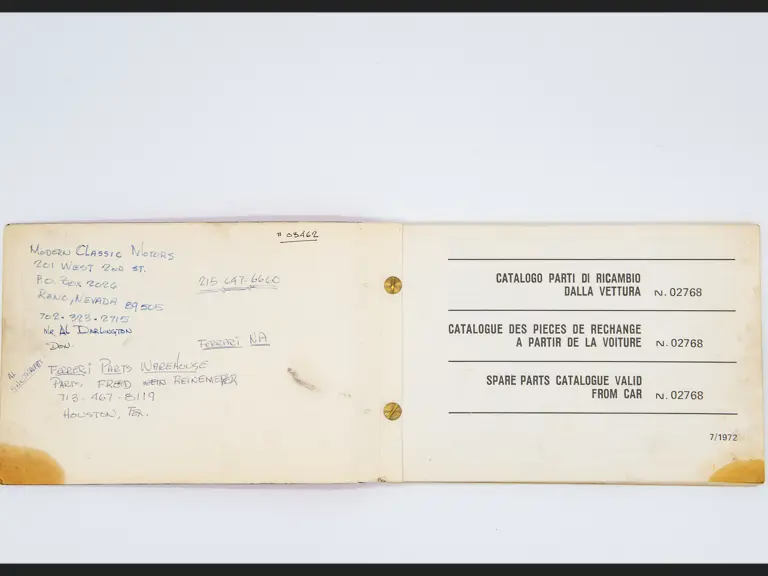 # 03462
MODERN CLASSIC MOTORS
201 WEST 2ND ST.
P.O. BOX 2026
215-647-6660
RENO, NEVADA 89505
702-323-2715
MR AL DARLINGTON
DON.
FERRARI NA
AL
FERRERI PARTS WAREHOUSE
PARTS, FRED
713-467-8119
HOUSTON, TEX.
CATALOGO PARTI DI RICAMBIO
DALLA VETTURA N. 02768
CATALOGUE DES PIECES DE RECHANGE
A PARTIR DE LA VOITURE N. 02768
SPARE PARTS CATALOGUE VALID
FROM CAR N. 02768
7/1972